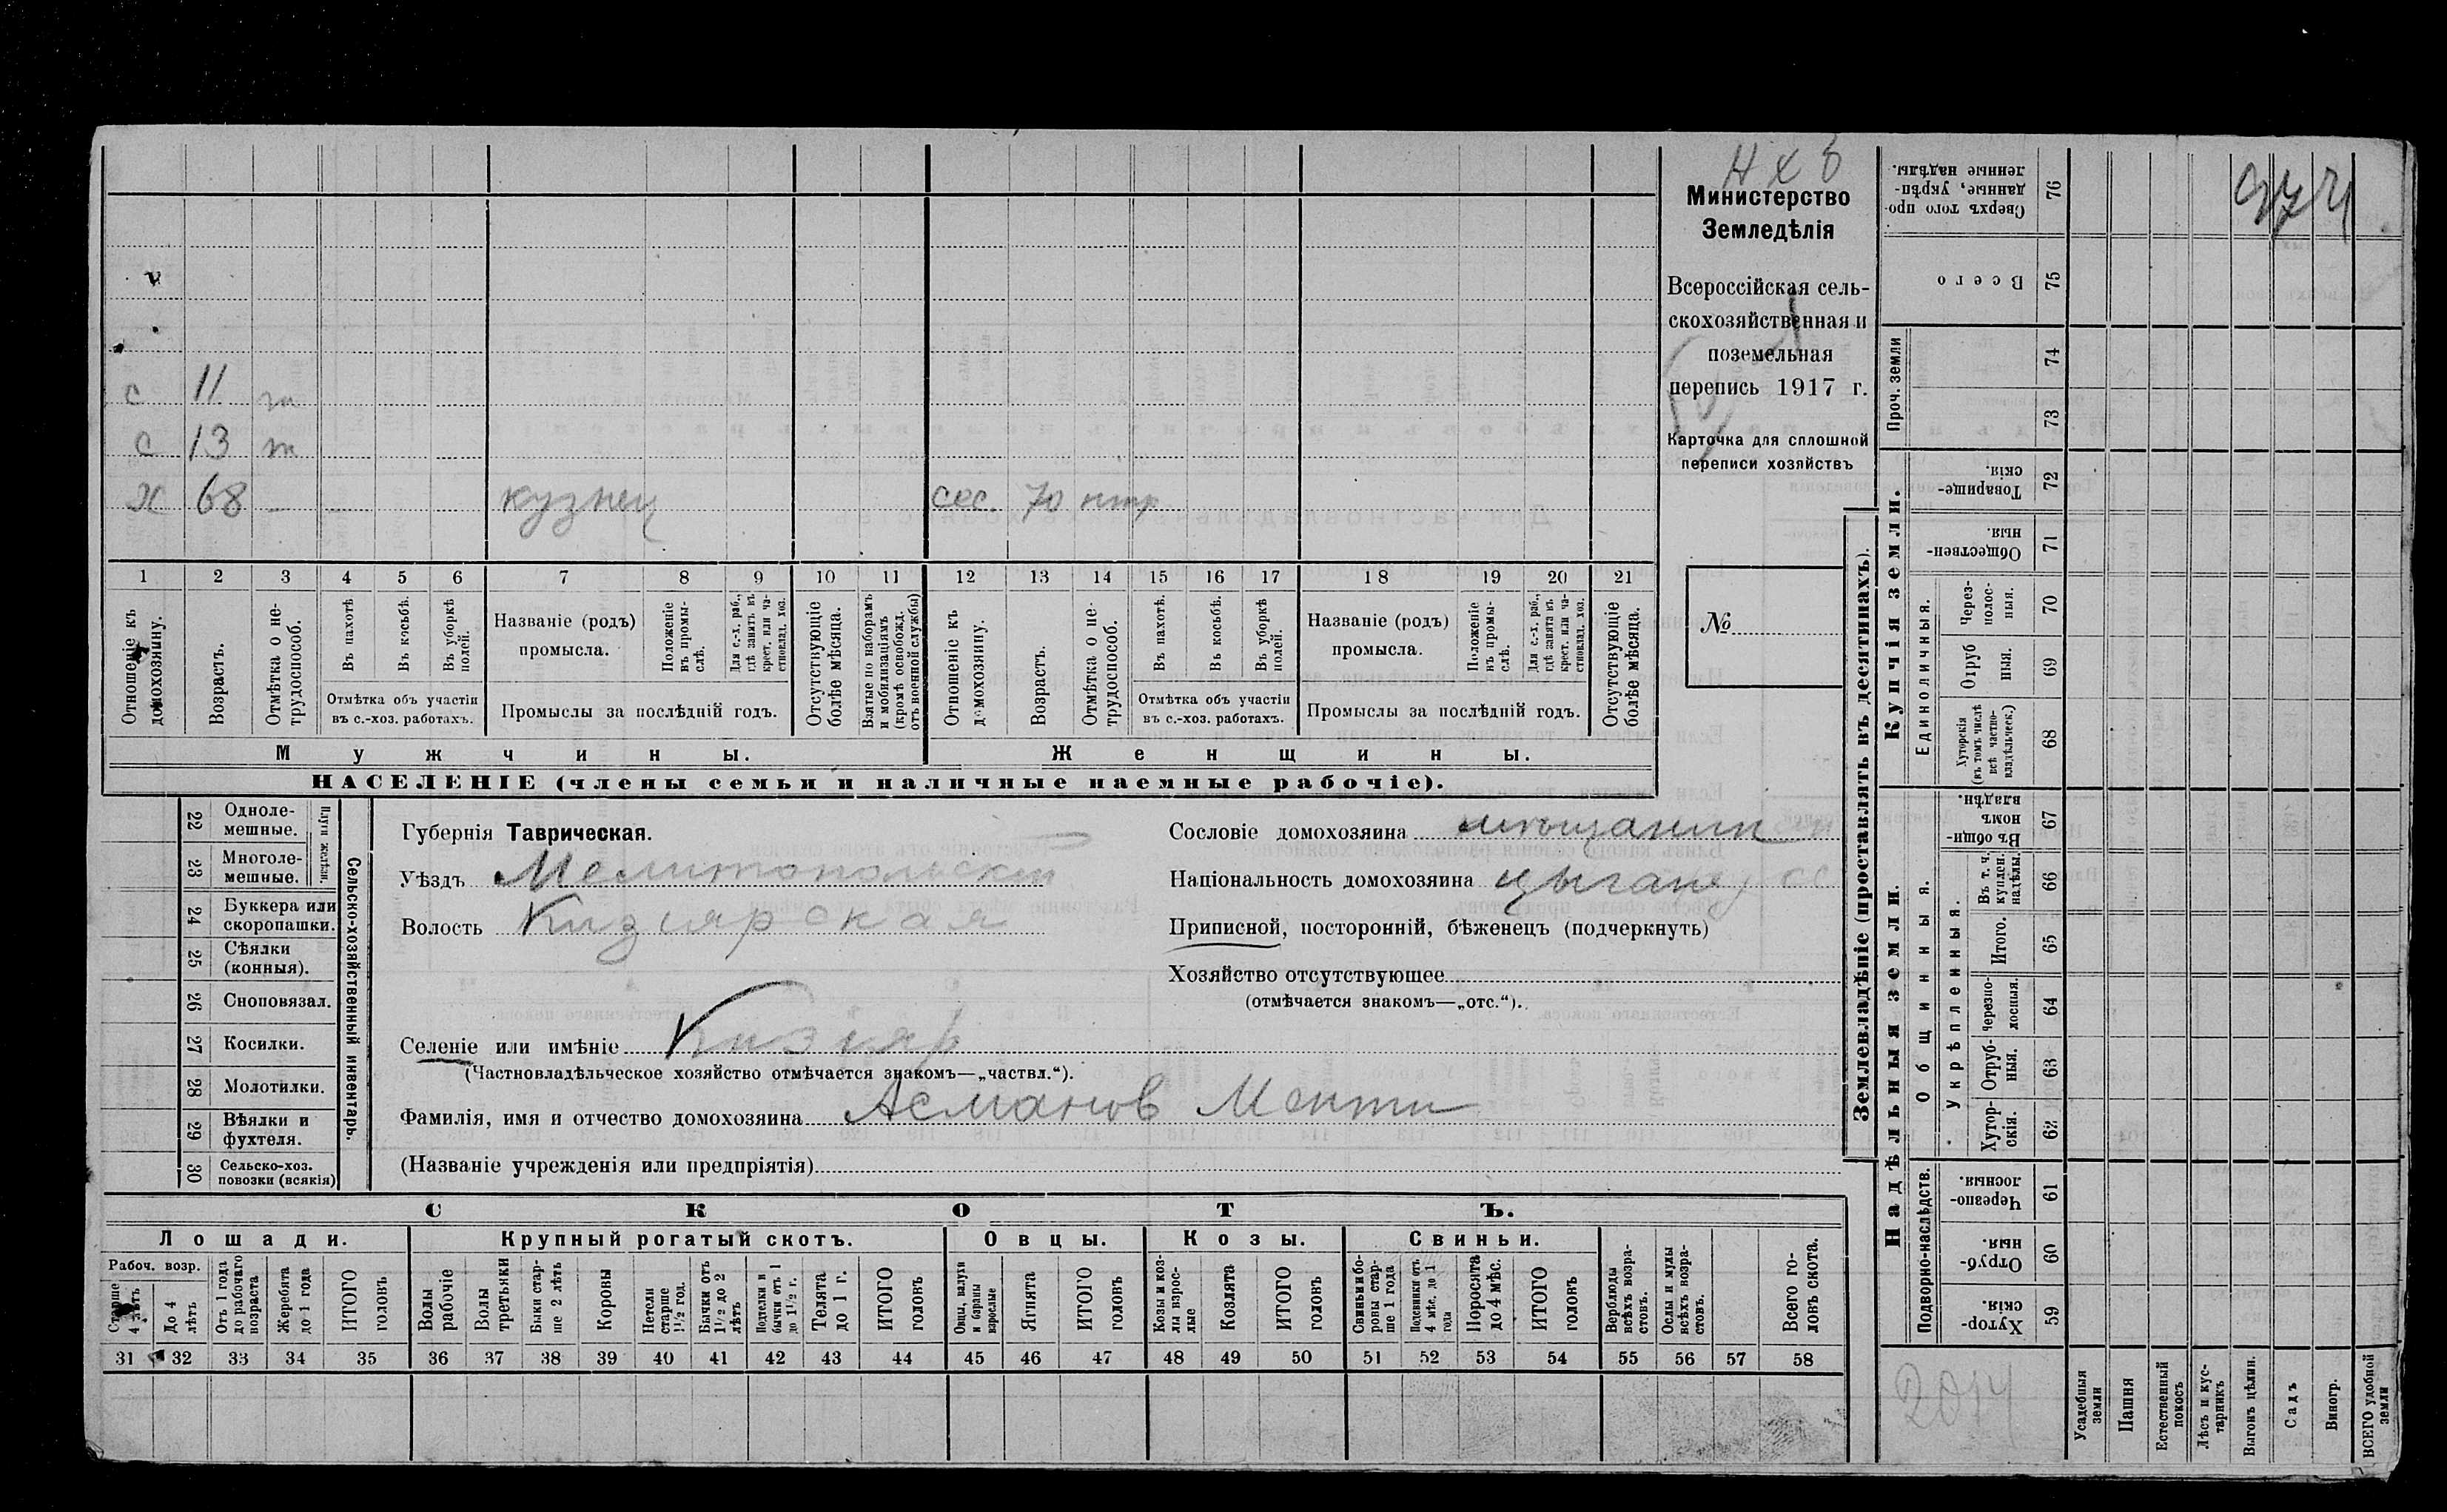 н х в
Министерство
Земледѣлія
Всероссійская сель-
скохозяйственная и
поземельная
перепись 1917 г.
Карточка для сплошной
переписи хозяйствъ
№
с 11 т
с 13 т
х 68 — — кузнец сес. 70 нтр
1 2 3 4 5 6 7 8 9 10 11 12 13 14 15 16 17 18 19 20 21
Отношеніе къ домохозяину.
Возрастъ.
Отмѣтка о не-трудоспособ.
Въ пахотѣ
Въ косьбѣ.
Въ уборкѣ полей.
Отмѣтка объ участіи
въ с.-хоз. работахъ.
Названіе (родъ)
промысла.
Положеніе въ промы-слѣ.
Для с.-х. раб., гдѣ занятъ въ крест. или ча-стновлад. хоз.
Промыслы за послѣдній годъ.
Отсутствующіе болѣе мѣсяца.
Взятые по наборамъ и мобилизаціямъ (кромѣ освобожд. отъ военной службы)
Отношеніе къ домохозяину.
Возрастъ.
Отмѣтка о не-трудоспособ.
Въ пахотѣ.
Въ косьбѣ.
Въ уборкѣ полей.
Отмѣтка объ участіи
въ с.-хоз. работахъ.
Названіе (родъ)
промысла.
Положеніе въ промы-слѣ.
Для с.-х. раб., гдѣ занята въ крест. или ча-стновлад. хоз.
Промыслы за послѣдній годъ.
Отсутствующіе болѣе мѣсяца.
Мужчины. Женщины.
НАСЕЛЕНІЕ (члены семьи и наличные наемные рабочіе).
22 Одноле-мешные.
23 Многоле-мешные.
Плуги желѣзн.
24 Буккера или скоропашки.
25 Сѣялки (конныя).
26 Сноповязал.
27 Косилки.
28 Молотилки.
29 Вѣялки и фухтеля.
30 Сельско-хоз. повозки (всякія)
Сельско-хозяйственный инвентарь.
Губернія Таврическая.
Уѣздъ Мелитопольский
Волость Кизиярская
Селеніе или имѣніе Кизияр
(Частновладѣльческое хозяйство отмѣчается знакомъ—„частвл.“).
Фамилія, имя и отчество домохозяина Асманов Менти
(Названіе учрежденія или предпріятія)
Сословіе домохозяина мѣщанин
Національность домохозяина цыгане
Приписной, посторонній, бѣженецъ (подчеркнуть)
Хозяйство отсутствующее
(отмѣчается знакомъ—„отс.“).
СКОТЪ.
Лошади. Крупный рогатый скотъ. Овцы. Козы. Свиньи.
Рабоч. возр.
Старше 4 лѣтъ
До 4 лѣтъ
Отъ 1 года до рабочаго возраста
Жеребята до 1 года
ИТОГО головъ
Волы рабочіе
Волы третьяки
Быки стар-ше 2 лѣтъ
Коровы
Нетели старше 1½ год.
Бычки отъ 1½ до 2 лѣтъ
Подтелки и бычки отъ 1 до 1½ г.
Телята до 1 г.
ИТОГО головъ
Овцы, валухи и бараны взрослые
Ягнята
ИТОГО головъ
Козы и коз-лы взрос-лые
Козлята
ИТОГО головъ
Свиньи и бо-ровы стар-ше 1 года
Подсвинки отъ 4 мѣс. до 1 года
Поросята до 4 мѣс.
ИТОГО головъ
Верблюды всѣхъ возра-стовъ.
Ослы и мулы всѣхъ возра-стовъ.
Всего го-ловъ скота.
31 32 33 34 35 36 37 38 39 40 41 42 43 44 45 46 47 48 49 50 51 52 53 54 55 56 57 58
Землевладѣніе (проставлять въ десятинахъ).
Купчія земли.
Надѣльныя земли.
Сверхъ того про-данные, укрѣп-ленные надѣлы. 76
Всего 75
Проч. земли 74
73
Товарище-скія. 72
Обществен-ныя. 71
Единоличныя.
Через-полос-ныя. 70
Отруб ныя. 69
Хуторскія (въ томъ числѣ всѣ частно-владѣльческ.) 68
Въ общи-номъ владѣн. 67
Общинныя.
Укрѣпленныя.
Въ т. ч. куплен. надѣлы. 66
Итого. 65
Черезпо-лосныя. 64
Отруб-ныя. 63
Хутор-скія. 62
Подворно-наслѣдств.
Черезпо-лосныя. 61
Отруб-ныя. 60
Хутор-скія. 59
2014
Усадебныя земли
Пашня
Естественный покосъ
Лѣсъ и кус-тарникъ
Выгонъ цѣлин.
Садъ
Виногр.
ВСЕГО удобной земли